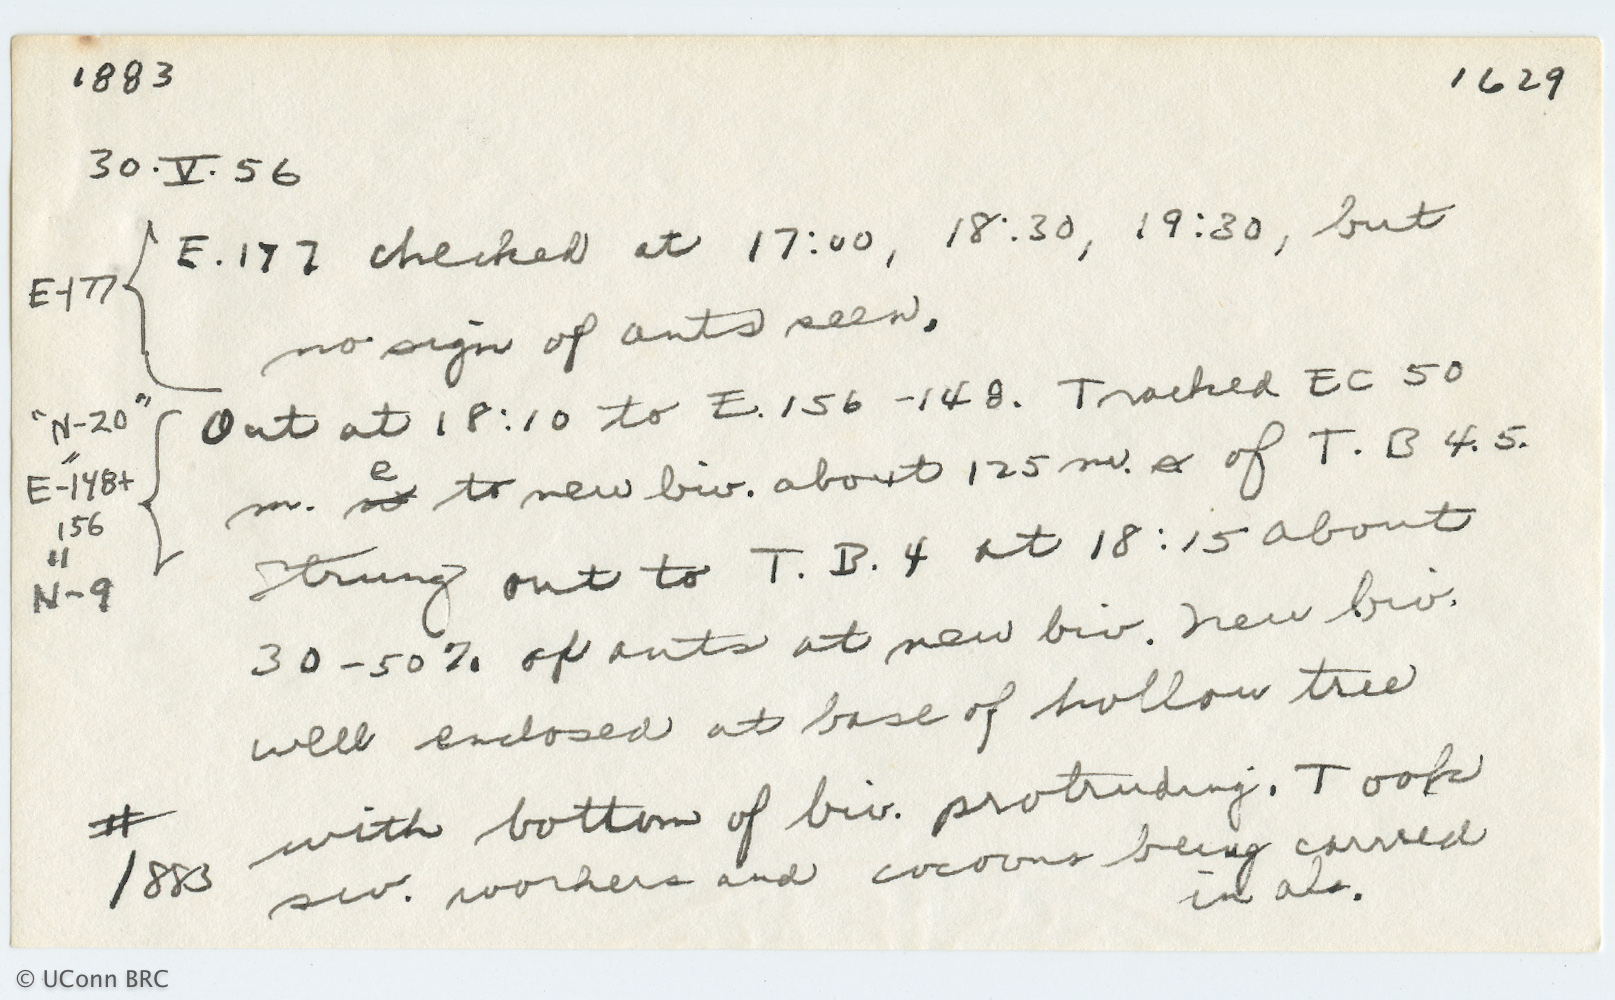 1883 1629
30.V.56
E.177 checked at 17:00, 18:30, 19:30, but
E-177
no sign of ants seen.
"N-20"
Out at 18:10 to E.156-148. Tracked EC 50
"
E-148+
m. e to new biv. about 125 m. s of T.B 4.5.
156
"
Strung out to T.B.4 at 18:15 about
N-9
30-50% of ants at new biv. New biv.
well enclosed at base of hollow tree
#
with bottom of biv. protruding. Took
1883
sev. workers and cocoons being carried
in alc.
© UConn BRC